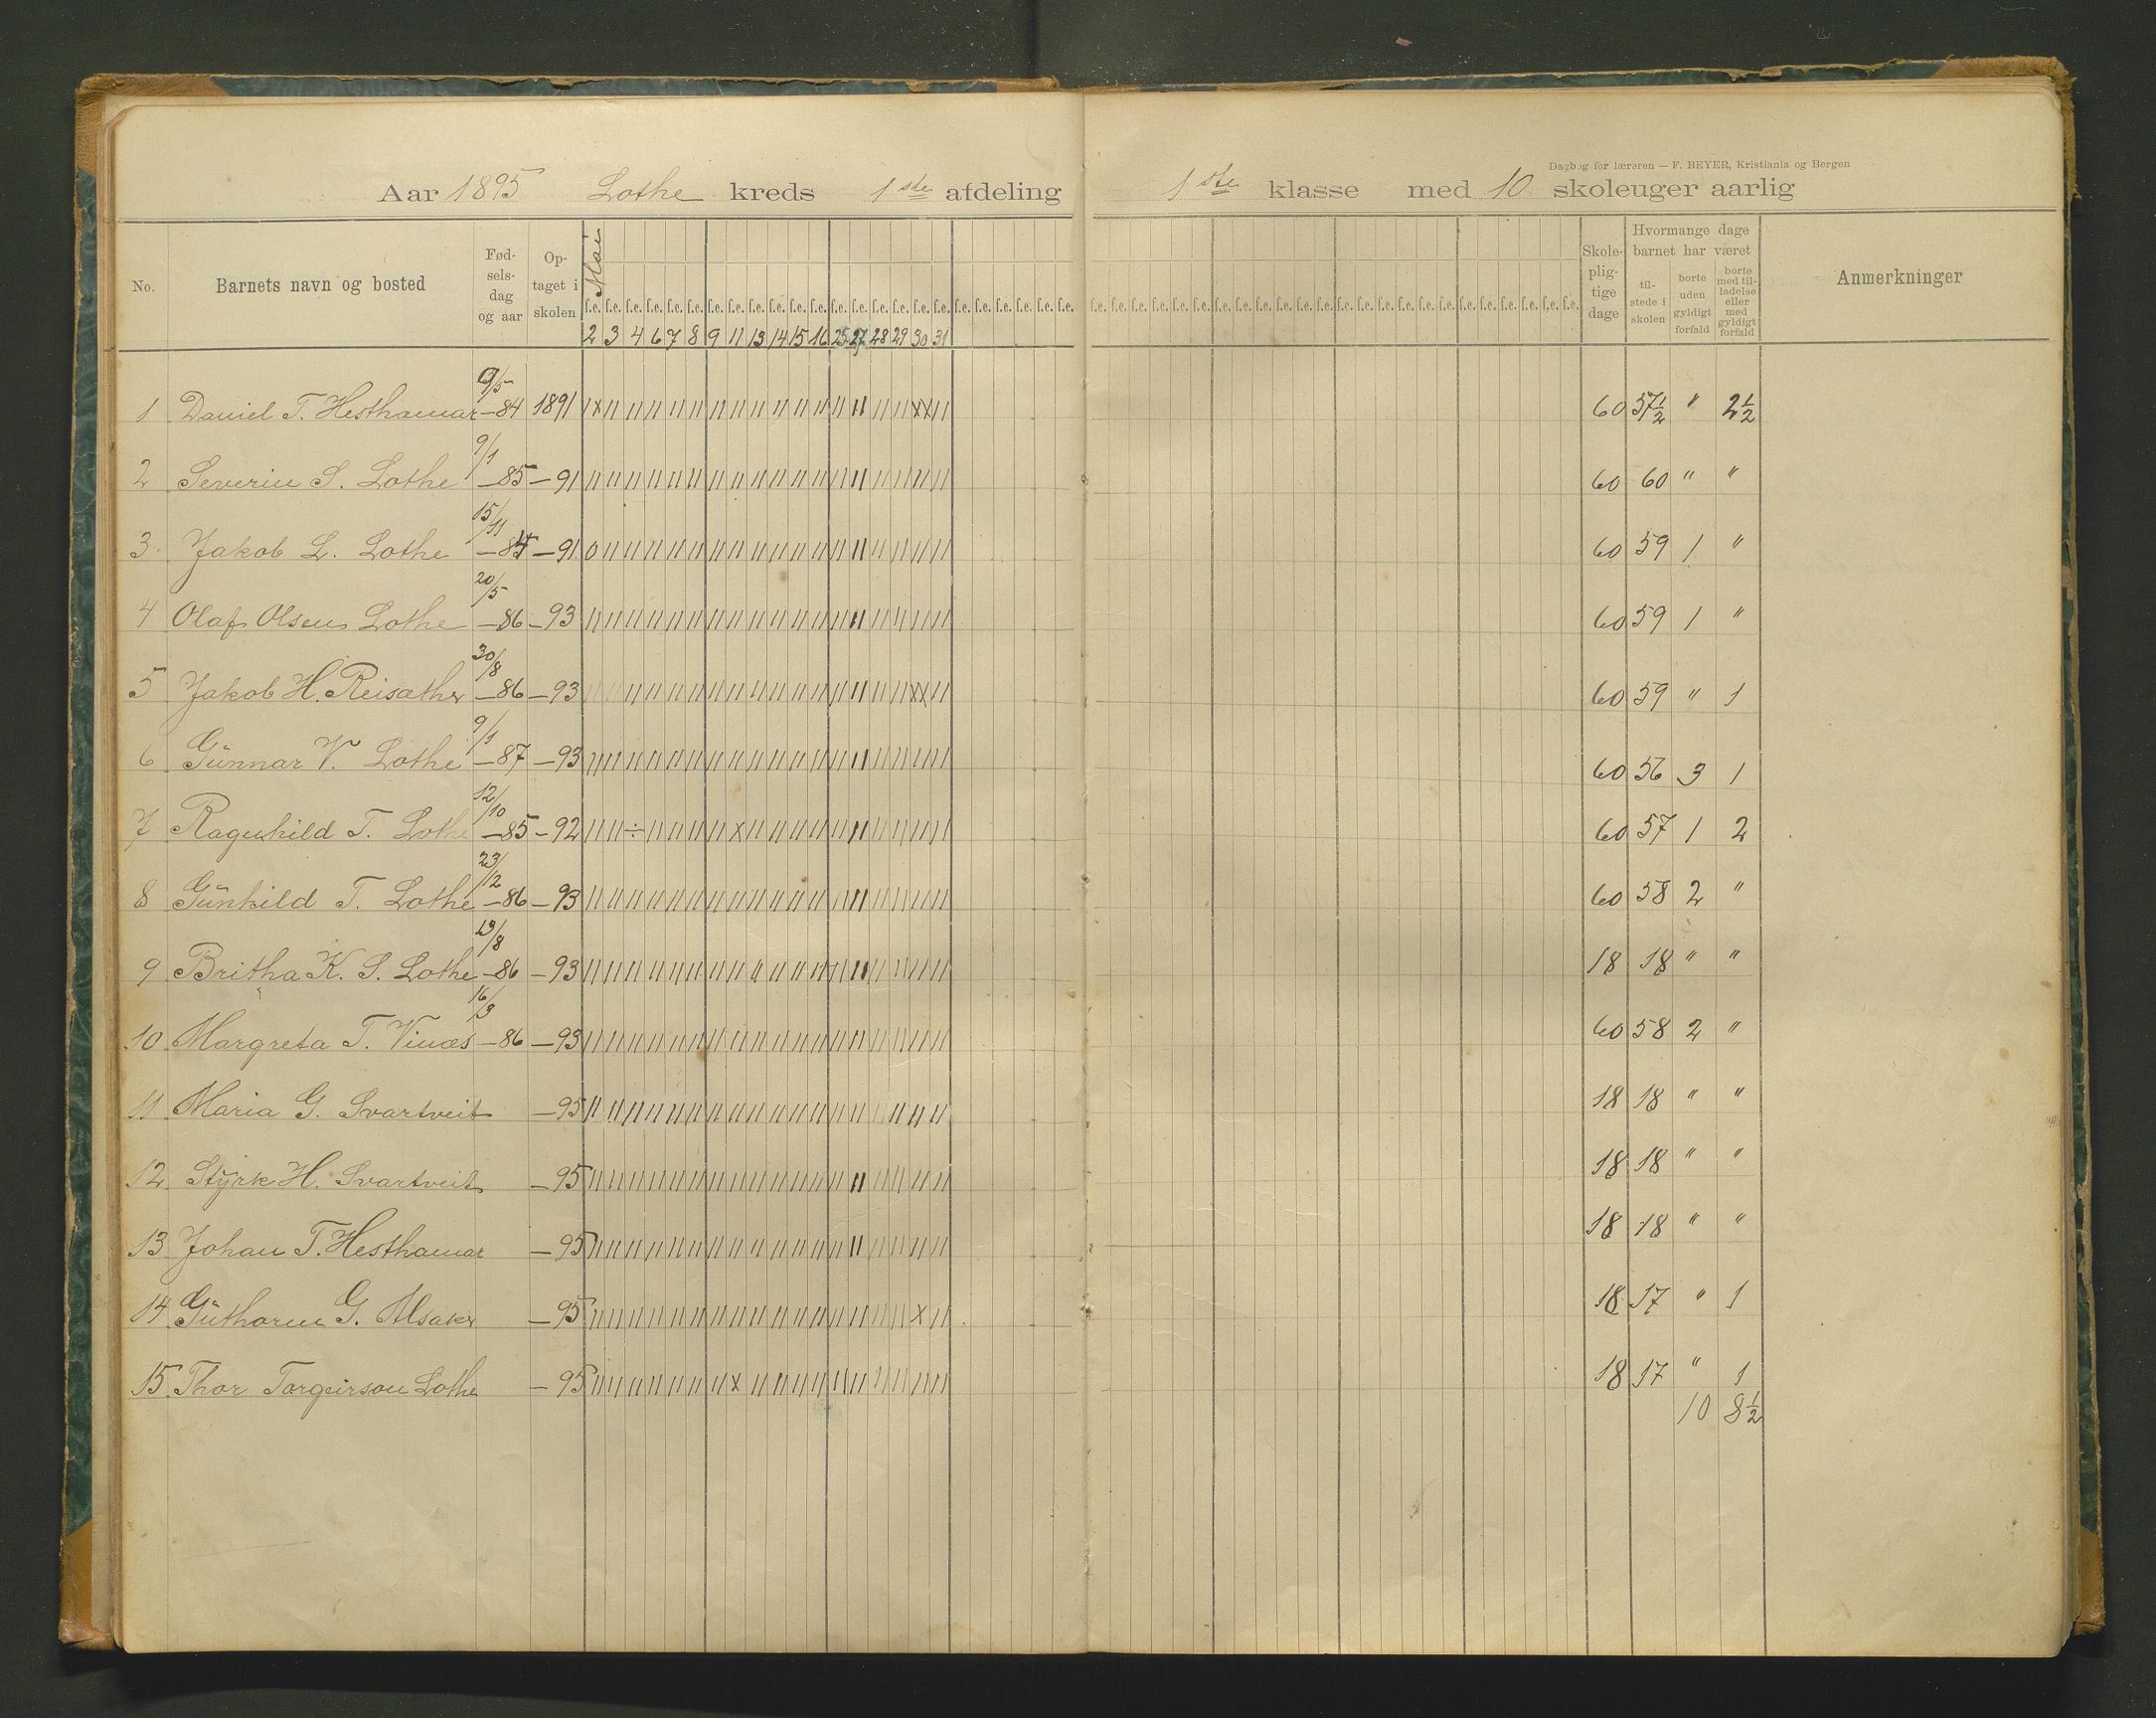 Dagbog for læreren — F. BEYER, Kristiania og Bergen
Aar 1895 Lothe kreds 1ste afdeling 1ste klasse med 10 skoleuger aarlig
No. Barnets navn og bosted Fødselsdag og aar Optaget i skolen Mai Skolepligtige dage Hvormange dage barnet har været Anmerkninger
tilstede i skolen borte uden gyldigt forfald borte med tilladelse eller med gyldigt forfald
f.e. f.e. f.e. f.e. f.e. f.e. f.e. f.e. f.e. f.e. f.e. f.e. f.e. f.e. f.e. f.e. f.e. f.e. f.e. f.e. f.e. f.e. f.e. f.e. f.e. f.e. f.e. f.e. f.e. f.e. f.e. f.e. f.e. f.e. f.e. f.e. f.e. f.e. f.e. f.e. f.e. f.e. f.e. f.e. f.e. f.e. f.e. f.e.
2 3 4 6 7 8 9 11 13 14 15 16 25 27 28 29 30 31
1 Daniel T. Hesthamar 9/5 — 84 1891 60 57½ " 2½
2 Severin S. Lothe 9/1 — 85 — 91 60 60 " "
3 Jakob L. Lothe 15/11 — 84 — 91 60 59 1 "
4 Olaf Olsen Lothe 20/5 — 86 — 93 60 59 1 "
5 Jakob H. Reisæther 30/8 — 86 — 93 60 59 " 1
6 Gunnar V. Lothe 9/1 — 87 — 93 60 56 3 1
7 Ragnhild T. Lothe 12/10 — 85 — 92 60 57 1 2
8 Gunhild T. Lothe 23/12 — 86 — 93 60 58 2 "
9 Britha K. S. Lothe /8 — 86 — 93 18 18 " "
10 Margreta T. Vinæs 16/3 — 86 — 93 60 58 2 "
11 Maria G. Svartveit — 95 18 18 " "
12 Styrk H. Svartveit — 95 18 18 " "
13 Johan T. Hesthamar — 95 18 18 " "
14 Guthorm G. Alsaker — 95 18 17 " 1
15 Thor Torgeirson Lothe — 95 18 17 " 1
10 8½